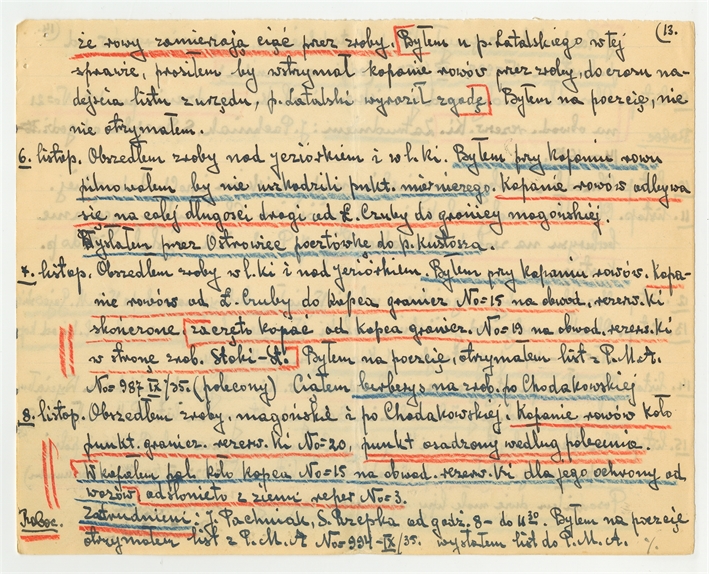 (13.
że rowy zamierzają ciąć przez zroby. Byłem u p. Latalskiego w tej
sprawie, prosiłem by wstrzymał kopanie rowów przez zroby, do czasu na-
dejścia listu z urzędu, p. Latalski wyraził zgodę. Byłem na poczcię, nic
nie otrzymałem.
6. listop. Obszedłem zroby nad jeziorkiem i w l. ki. Byłem przy kopaniu rowu
pilnowałem by nie uszkodzili punkt. mierniczego. Kopanie rowów odbywa
się na całej długości drogi od Ł. Cruby do granicy magońskiej.
Wysłałem przez Ostrowiec pocztówkę do p. kustosza.
7. listop. Obszedłem zroby w l. ki i nad jeziórkiem. Byłem przy kopaniu rowów. Kopa-
nie rowów od Ł. Cruby do kopca granicz. No=15 na obwod. rezerw. ki
skończone, zaczęto kopać od kopca granicz. No=19 na obwod. rezerw. ki
w stronę zrob. Stoki-St. Byłem na poczcię, otrzymałem list z P.M.A.
No= 987 IX/35. (polecony) Ciąłem berberys na zrob. po Chodakowskiej
8. listop. Obszedłem zroby. magońskie i po Chodakowskiej. Kopanie rowów koło
punkt. granicz. rezerw. ki No=20, punkt osadzony według polecenia.
Wkopałem pal koło kopca No=15 na obwod. rezerw. ki dla jego ochrony od
wozów, odsłonięto z ziemi reper No=3.
Roboc. Zatrudnieni: J. Pachniak, S. Rzepka od godz. 8- do 11 30. Byłem na poczcię
otrzymałem list z P.M.A No= 994-IX/35. wysłałem list do P.M.A. %